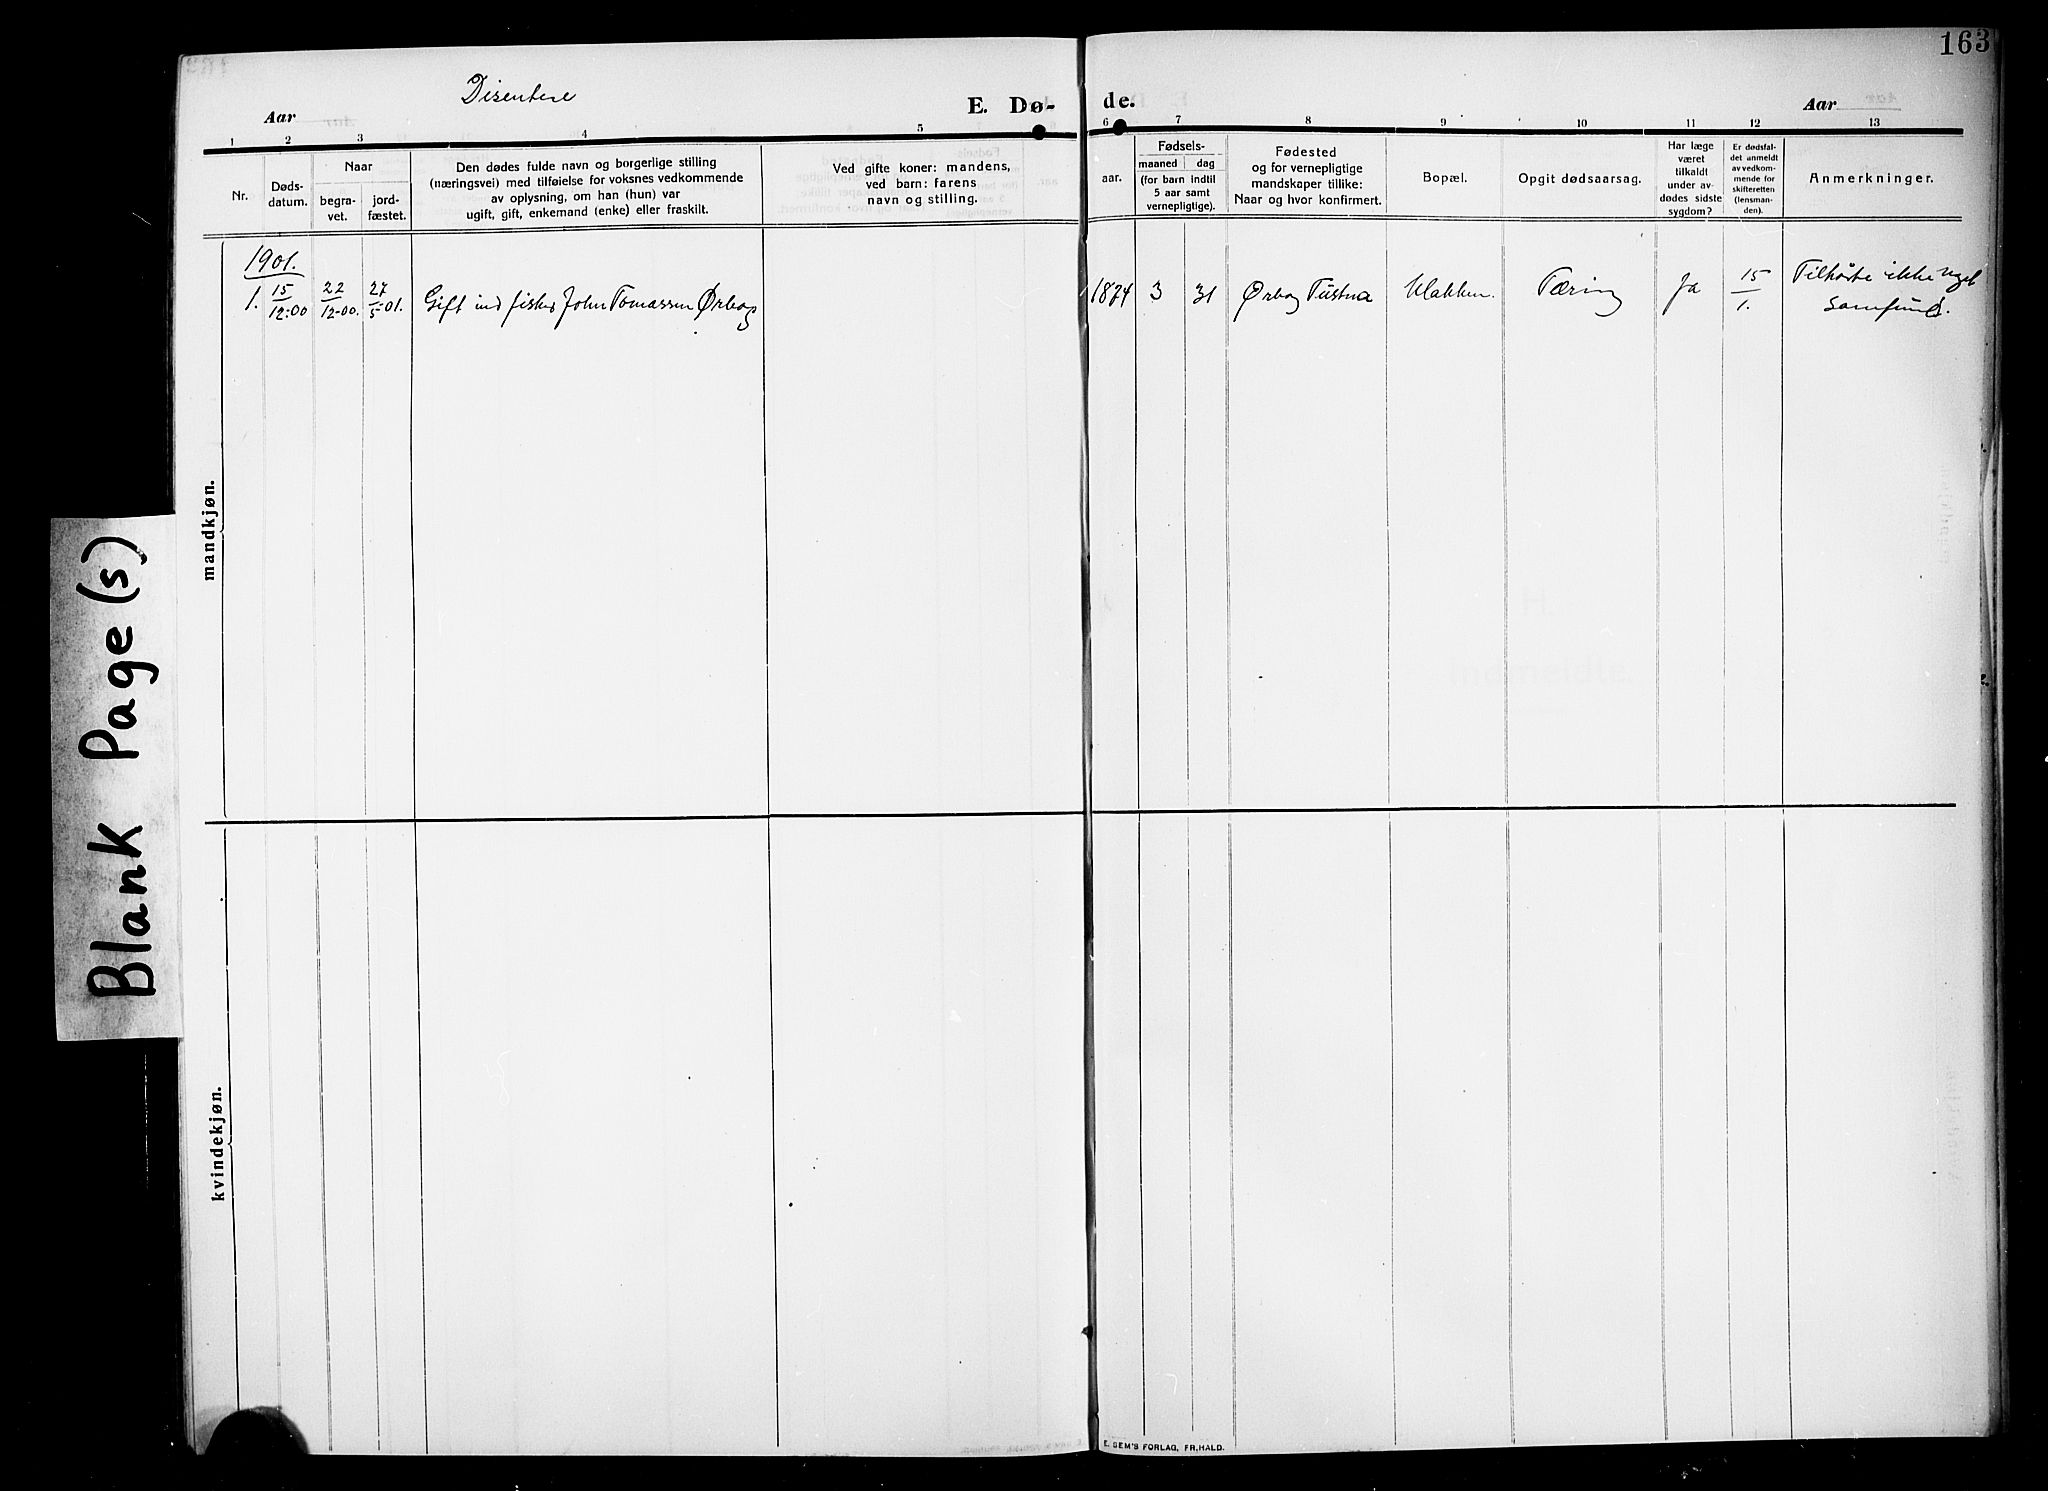 163
Disentere
Aar
E. Dø-
de.
Aar
1 2 3 4 5 6 6 7 8 9 10 11 12 13
Nr.
Døds-
datum.
Naar
begra-
vet.
jord-
fæstet.
Den dødes fulde navn og borgerlige stilling
(næringsvei) med tilføielse for voksnes vedkommende
av oplysning, om han (hun) var
ugift, gift, enkemand (enke) eller fraskilt.
Ved gifte koner: mandens,
ved barn: farens
navn og stilling.
aar.
Fødsels-
maaned dag
(for barn indtil
5 aar samt
vernepligtige).
Fødested
og for vernepligtige
mandskaper tillike:
Naar og hvor konfirmert.
Bopæl.
Opgit dødsaarsag.
Har læge
været
tilkaldt
under av-
dødes sidste
sygdom?
Er dødsfal-
det anmeldt
av vedkom-
mende for
skifteretten
(lensman-
den).
Anmerkninger.
1901.
1. 15/12.00 22/12-00. 27/5 01. Gift ind fisker John Tomassen Ørbog 1874 3 31 Ørbog Tustna Klakken. Tæring Ja 15/1. Tilhørte ikke noget
samfund.
mandkjøn.
kvindekjøn.
Blank Page(s)
E. SEM'S FORLAG, FR.HALD.